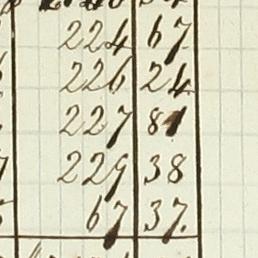 224 67
226 24
227 81
229 38
67 37.